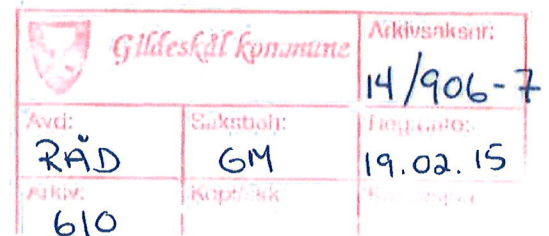 Gildeskål kommune
Arkivsaksnr:
14/906-7
Avd:
Saksbeh:
Reg.dato:
RÅD
GM
19.02.15
Arkiv:
610